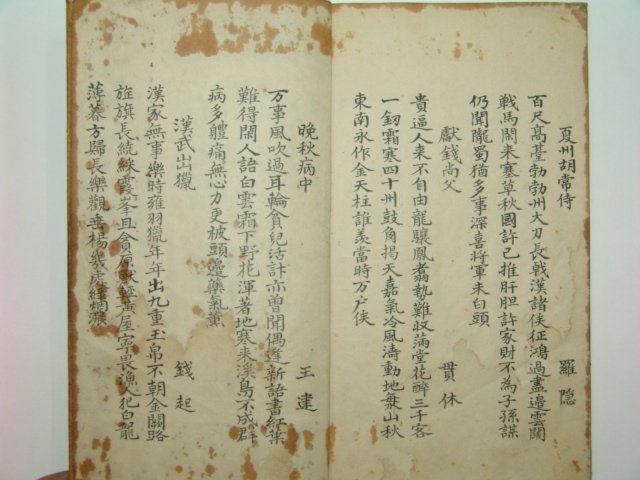 夏州胡常侍 羅隐
百尺高䑓勃勃州大刀長戟漢諸侯征鴻過盡邉雲闊
戦馬閑来塞草秋國計已推肝胆許家財不為子孫謀
仍聞隴蜀猶多事深喜将軍未白頭
獻錢尚父 貫休
貴逼人来不自由龍驤鳳翥勢難収滿堂花醉三千客
一釰霜寒四十州鼓角揭天嘉氣冷風濤動地海山秋
東南永作金天柱誰羡當時万户侯
晚秋病中 王建
万事風吹過耳輪貧兒活計亦曽聞偶逢新語書紅葉
難得閑人語白雲霜下野花渾著地寒来溪鳥不成群
病多體痛無心力更被頭邊藥氣薫
漢武出獵 錢起
漢家無事樂時雍羽獵年年出九重玉帛不朝金闕路
旌旗長繞綵霞峯且貪原獸輕黄屋寧畏漁人犯白龍
薄暮方歸長樂觀垂楊幾處綠烟濃